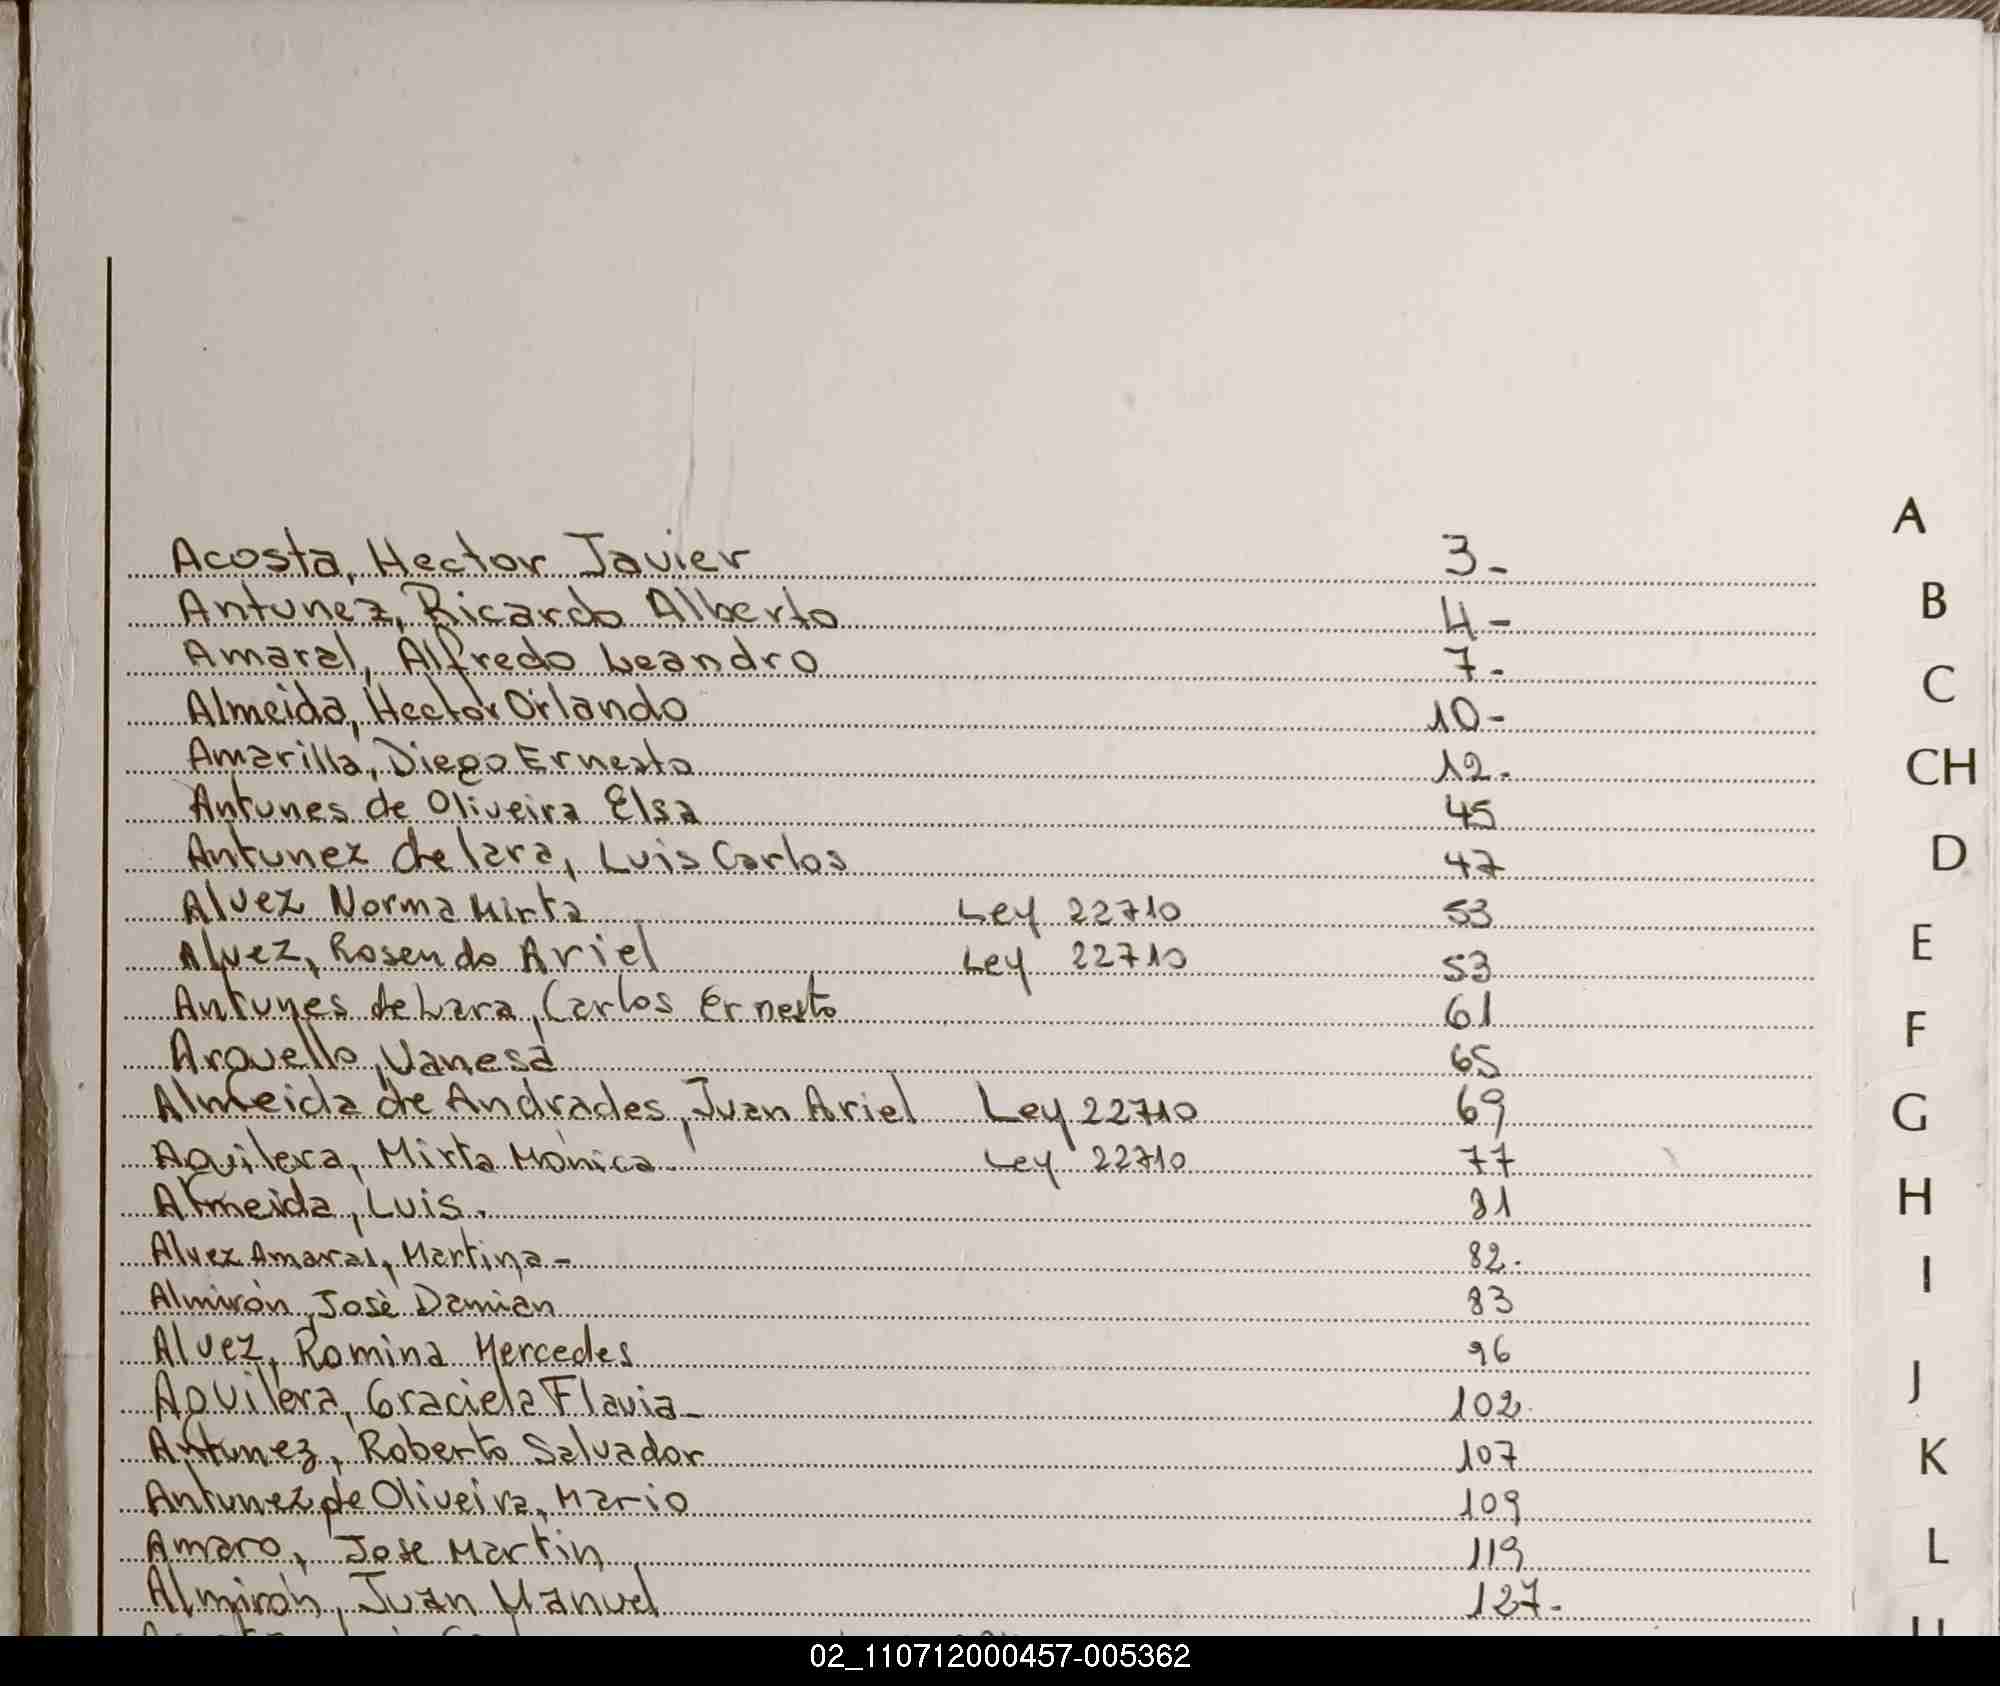 A
Acosta, Hector Javier 3-
Antunez, Ricardo Alberto 4-
B
Amaral, Alfredo Leandro 7-
C
Almeida, Hector Orlando 10-
Amarilla, Diego Ernesto 12.
CH
Antunes de Oliveira Elsa 45
Antunez de lara, Luis Carlos 47
D
Alvez Norma Mirta Ley 22710 53
Alvez, Rosendo Ariel Ley 22710 53
E
Antunes de Lara, Carlos Ernesto 61
F
Arguello, Vanesa 65
Almeida de Andrades, Juan Ariel Ley 22710 69
G
Aguilera, Mirta Mónica. Ley 22710 77
Almeida, Luis. 81
H
Alvez Amaral, Martina- 82.
Almirón, José Damian 83
I
Alvez, Romina Mercedes 96
J
Aguilera, Graciela Flavia- 102.
Antunez, Roberto Salvador 107
K
Antunez de Oliveira, Mario 109
Amaro, Jose Martin 119
L
Almirón, Juan Manuel 127-
02_110712000457-005362